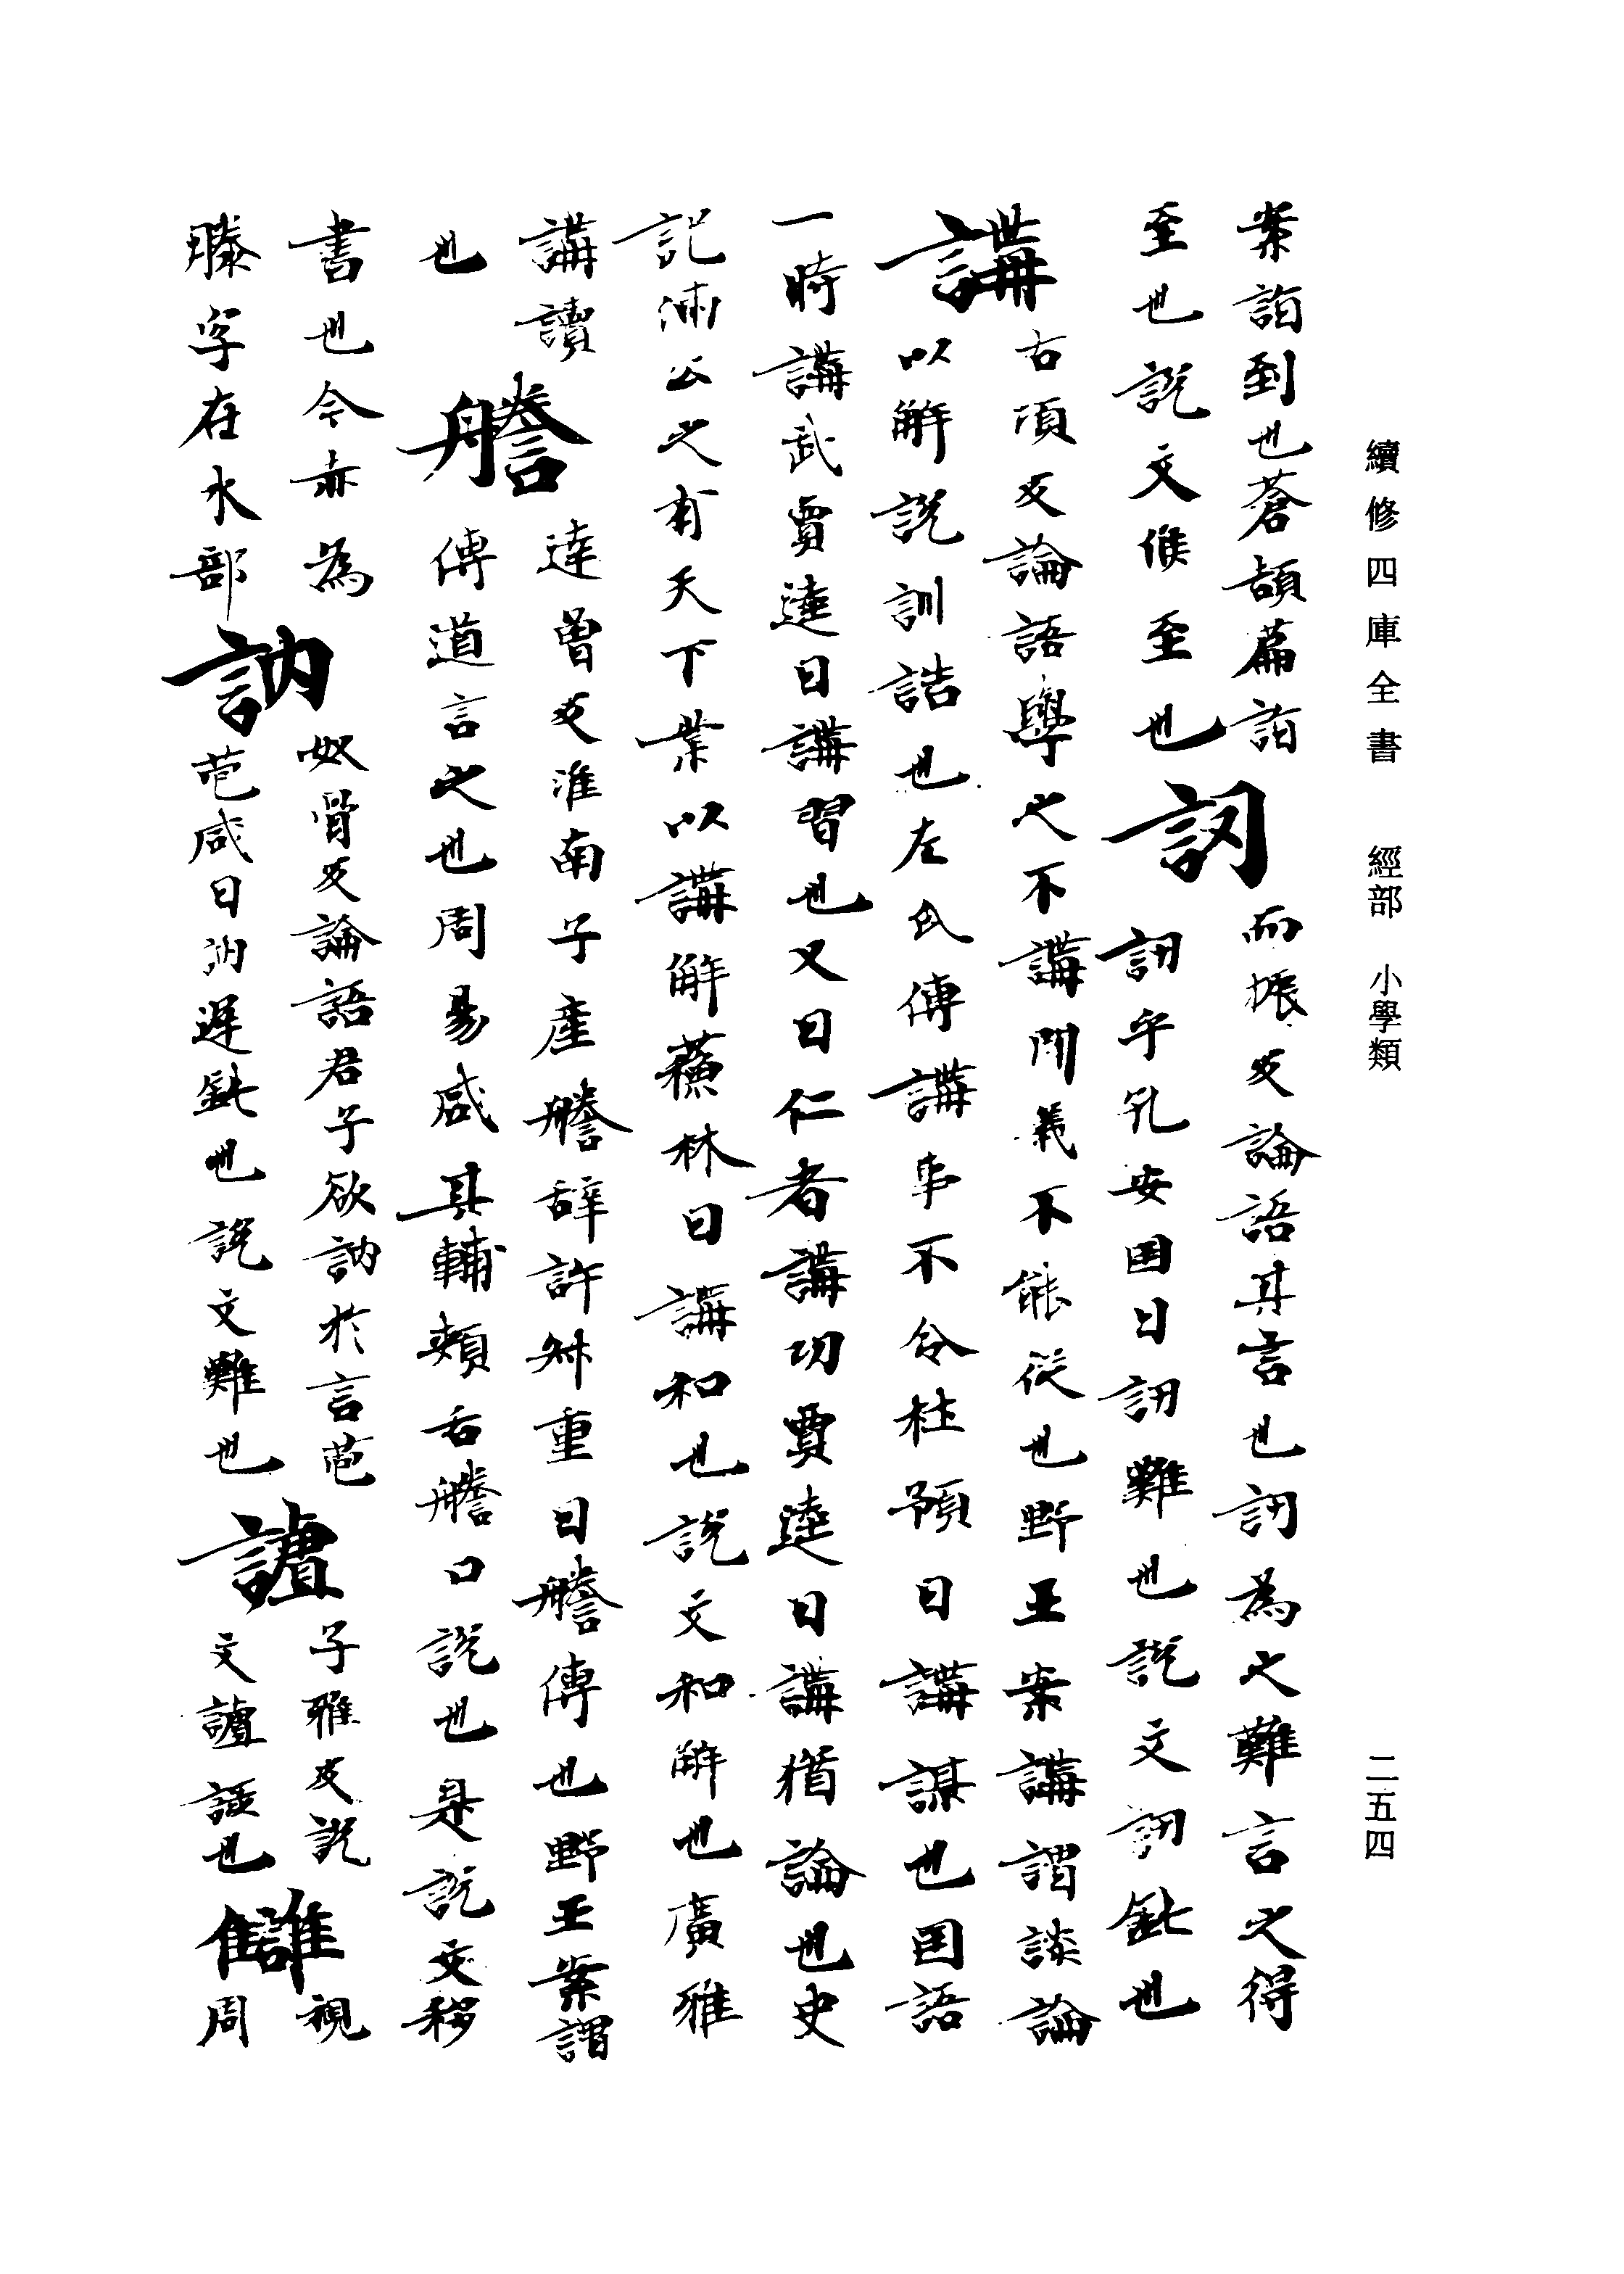 續修四庫全書 經部 小學類
二五四
案詣到也蒼頡篇詣
至也說文候至也
訒
而振反論語其言也訒為之難言之得
訒乎孔安囯曰訒難也說文訒鈍也
講
古項反論語學之不講聞義不能從也野王案講謂談論
以解說訓誥也左氏傳講事不令杜預曰講謀也囯語
一時講武賈逵曰講習也又曰仁者講功賈逵曰講猶論也史
記沛公之有天下業以講解蘇林曰講和也說文和解也廣雅
講讀
也
謄
達曾反淮南子產謄辝許叔重曰謄傳也野王案謂
傳道言之也周易咸其輔頰舌謄口說也是說文移
書也今亦為
滕字在水部
訥
奴骨反論語君子欲訥於言苞
苞咸曰訥遅鈍也說文難也
謯
子雅反說
文謯也
讎
視
周